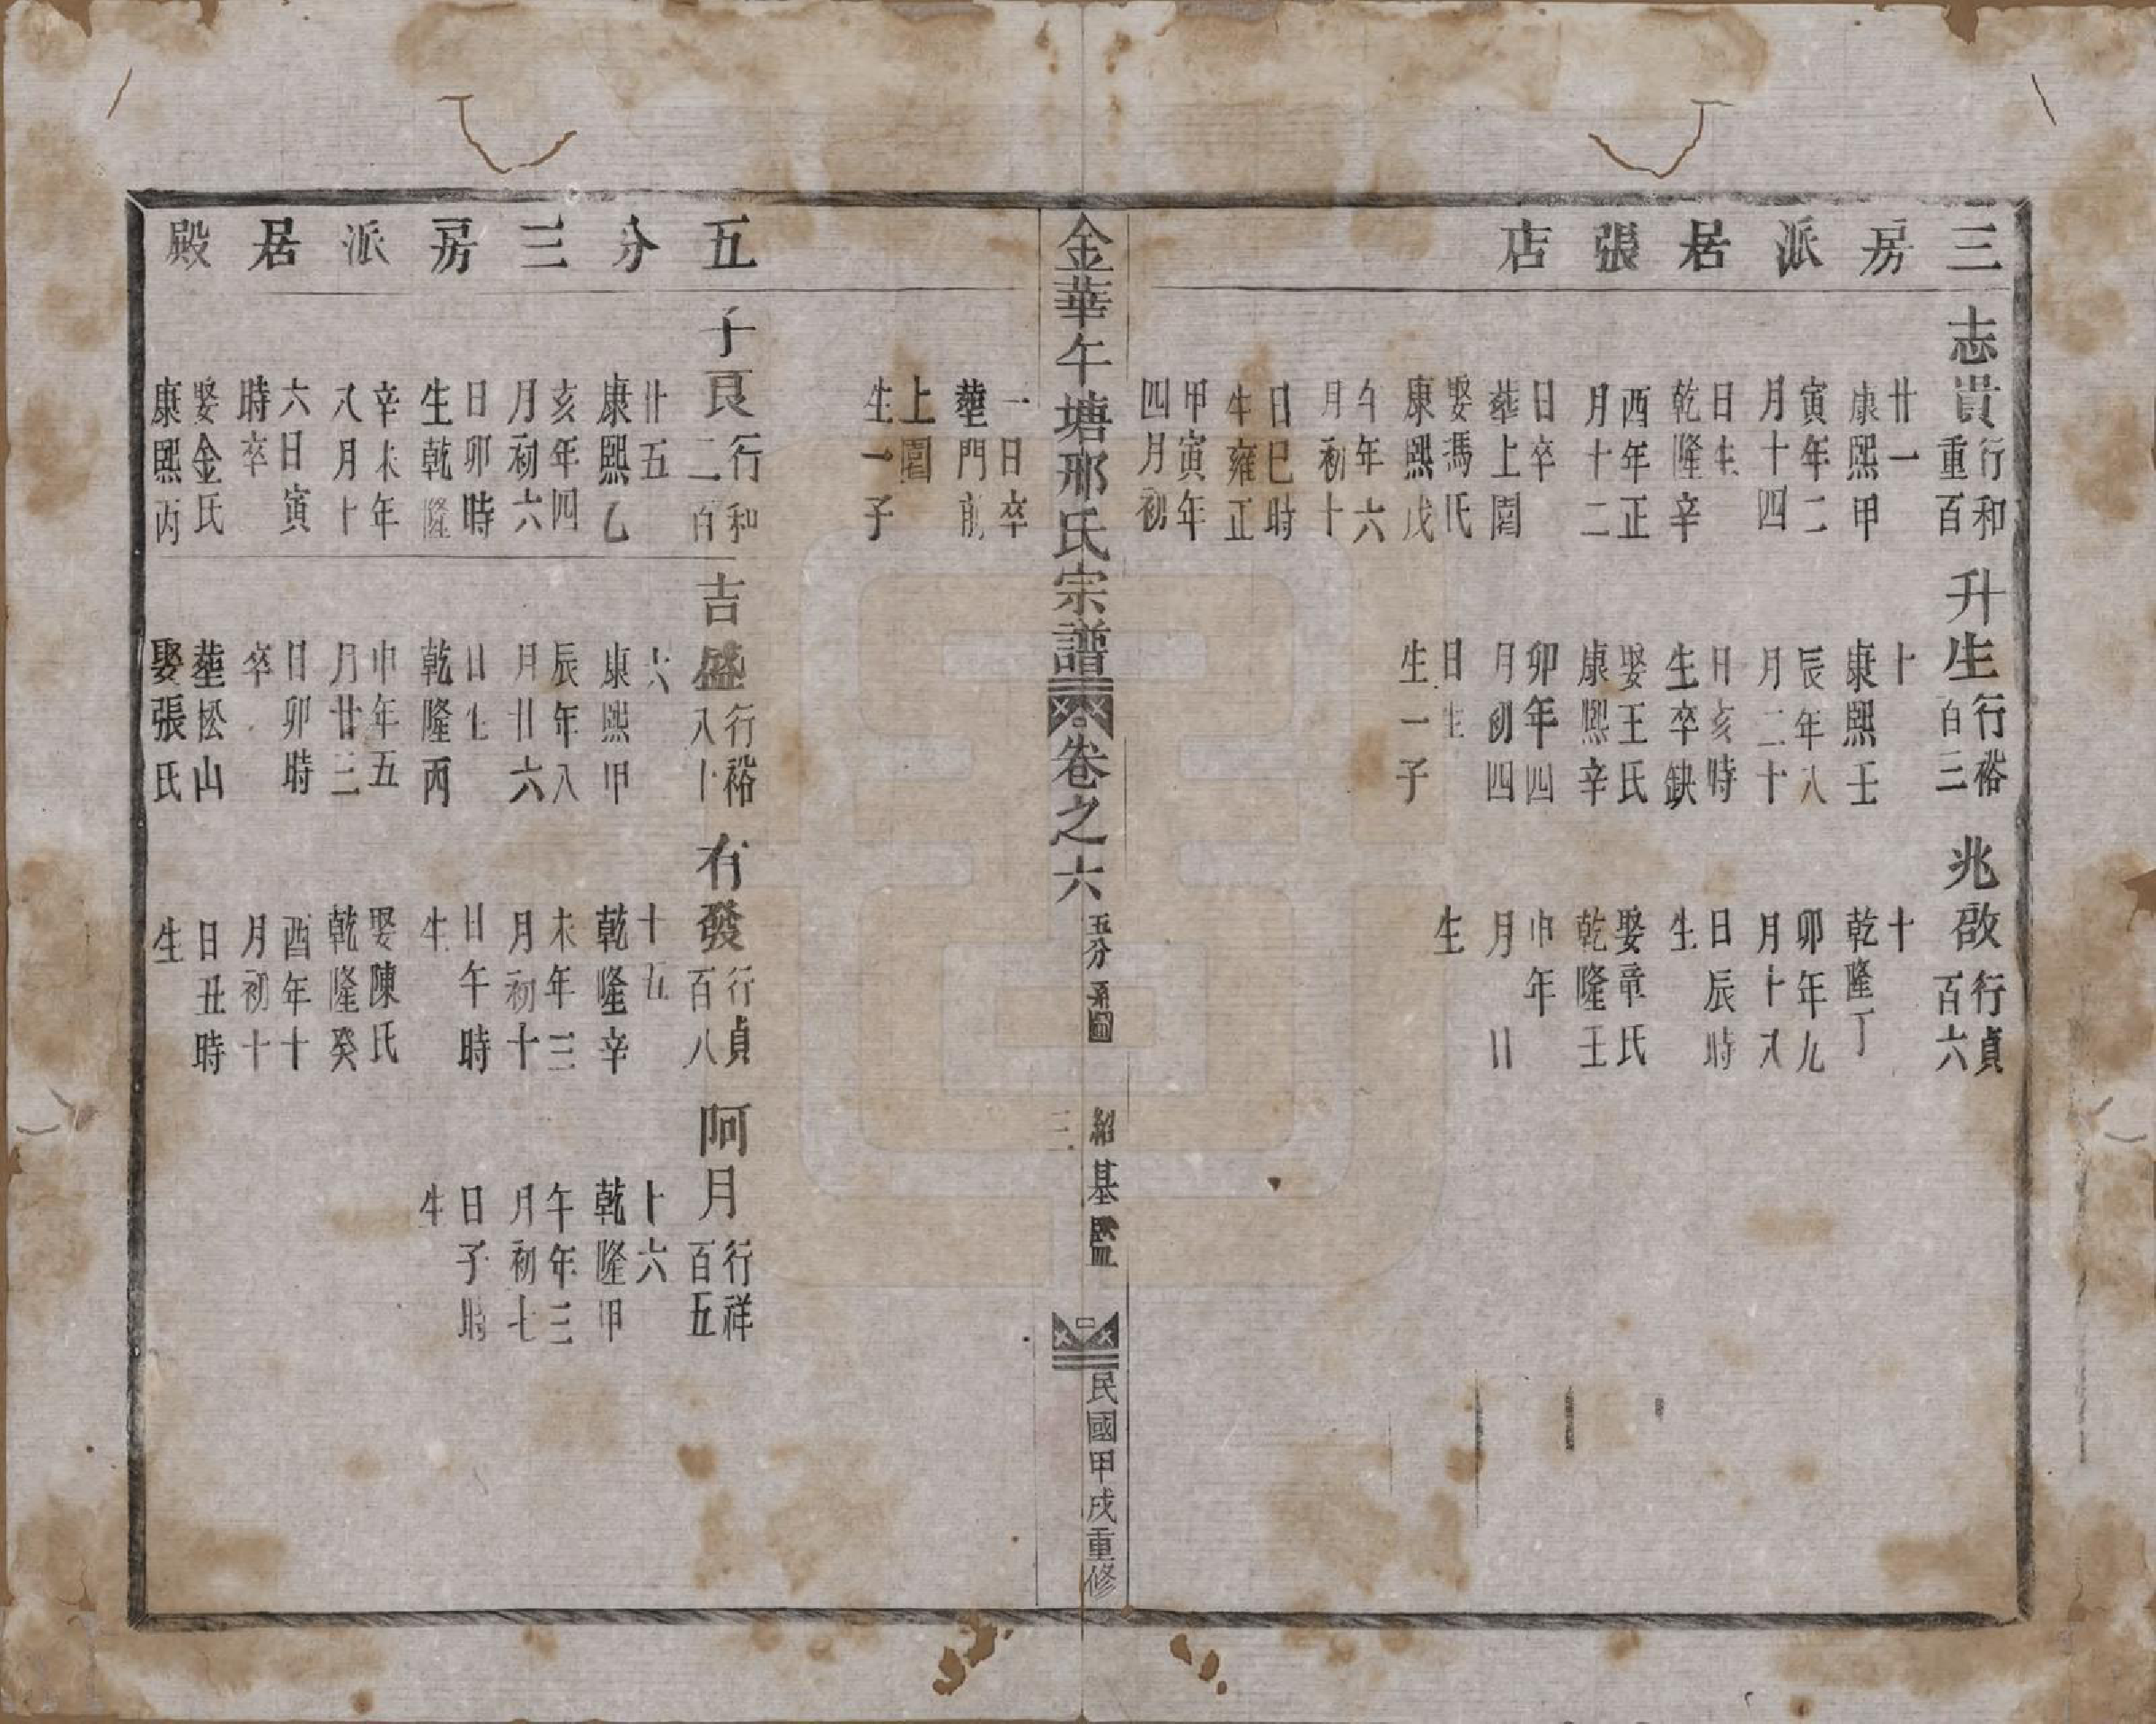 三房派居張店
志貴
行和
重百
廿一
康熙甲
寅年二
月十四
日生
乾隆辛
酉年正
月十二
日卒
葬上園
娶馮氏
康熙戊
午年六
月初十
日巳時
生雍正
甲寅年
四月初
一日卒
塟門前
上園
生一子
升生
行裕
百三
十
康熙壬
辰年八
月二十
日亥時
生卒缺
娶王氏
康熙辛
卯年四
月初四
日生
生一子
兆啟
行貞
百六
十
乾隆丁
卯年九
月十八
日辰時
生
娶章氏
乾隆壬
申年
月 日
生
金華午塘邢氏宗譜
卷之六
五分系圖
三
紹基監
民國甲戌重修
五分三房派居殿
子良
行和
二百
廿五
康熙乙
亥年四
月初六
日卯時
生乾隆
辛未年
八月十
六日寅
時卒
娶金氏
康熙丙
吉盛
行裕
八十
六
康熙甲
辰年八
月廿六
日生
乾隆丙
申年五
月廿三
日卯時
卒
塟松山
娶張氏
有發
行貞
百八
十五
乾隆辛
未年三
月初十
日午時
生
娶陳氏
乾隆癸
酉年十
月初十
日丑時
生
阿月
行祥
百五
十六
乾隆甲
午年三
月初七
日子時
生